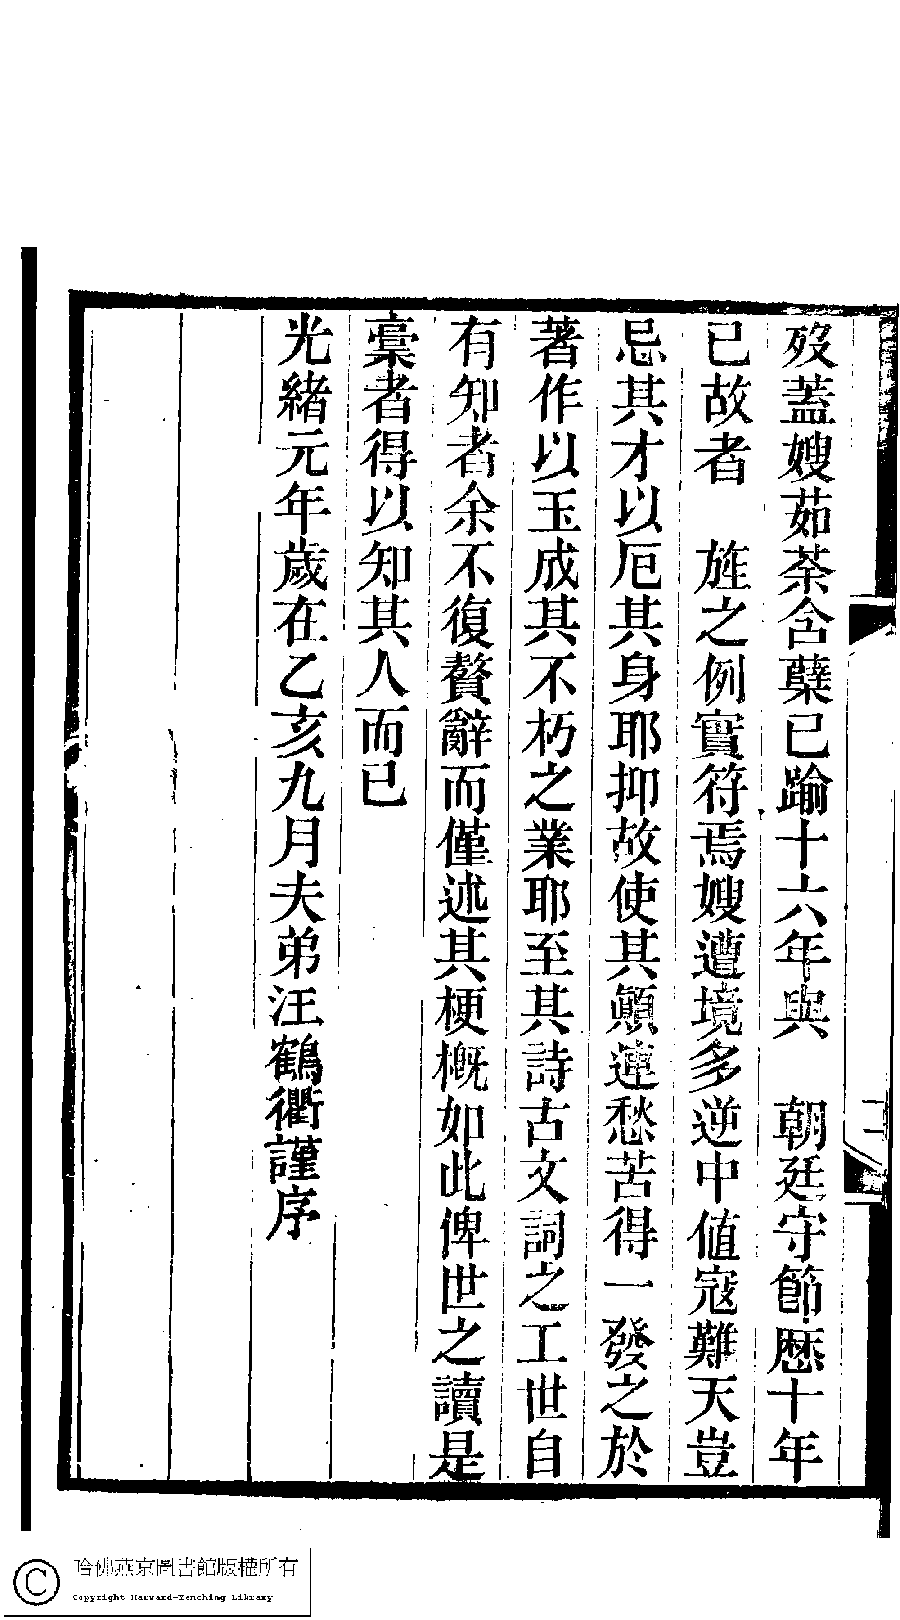 歿蓋嫂茹荼含蘗已踰十六年與　朝廷守節歷十年
已故者　旌之例實符焉嫂遭境多逆中値寇難天豈
忌其才以厄其身耶抑故使其顚連愁苦得一發之於
著作以玉成其不朽之業耶至其詩古文詞之工世自
有知者余不復贅辭而僅述其梗槪如此俾世之讀是
稾者得以知其人而已
光緒元年歲在乙亥九月夫弟汪鶴衢謹序
二
哈佛燕京圖書館版權所有
Copyright Harvard-Yenching Library